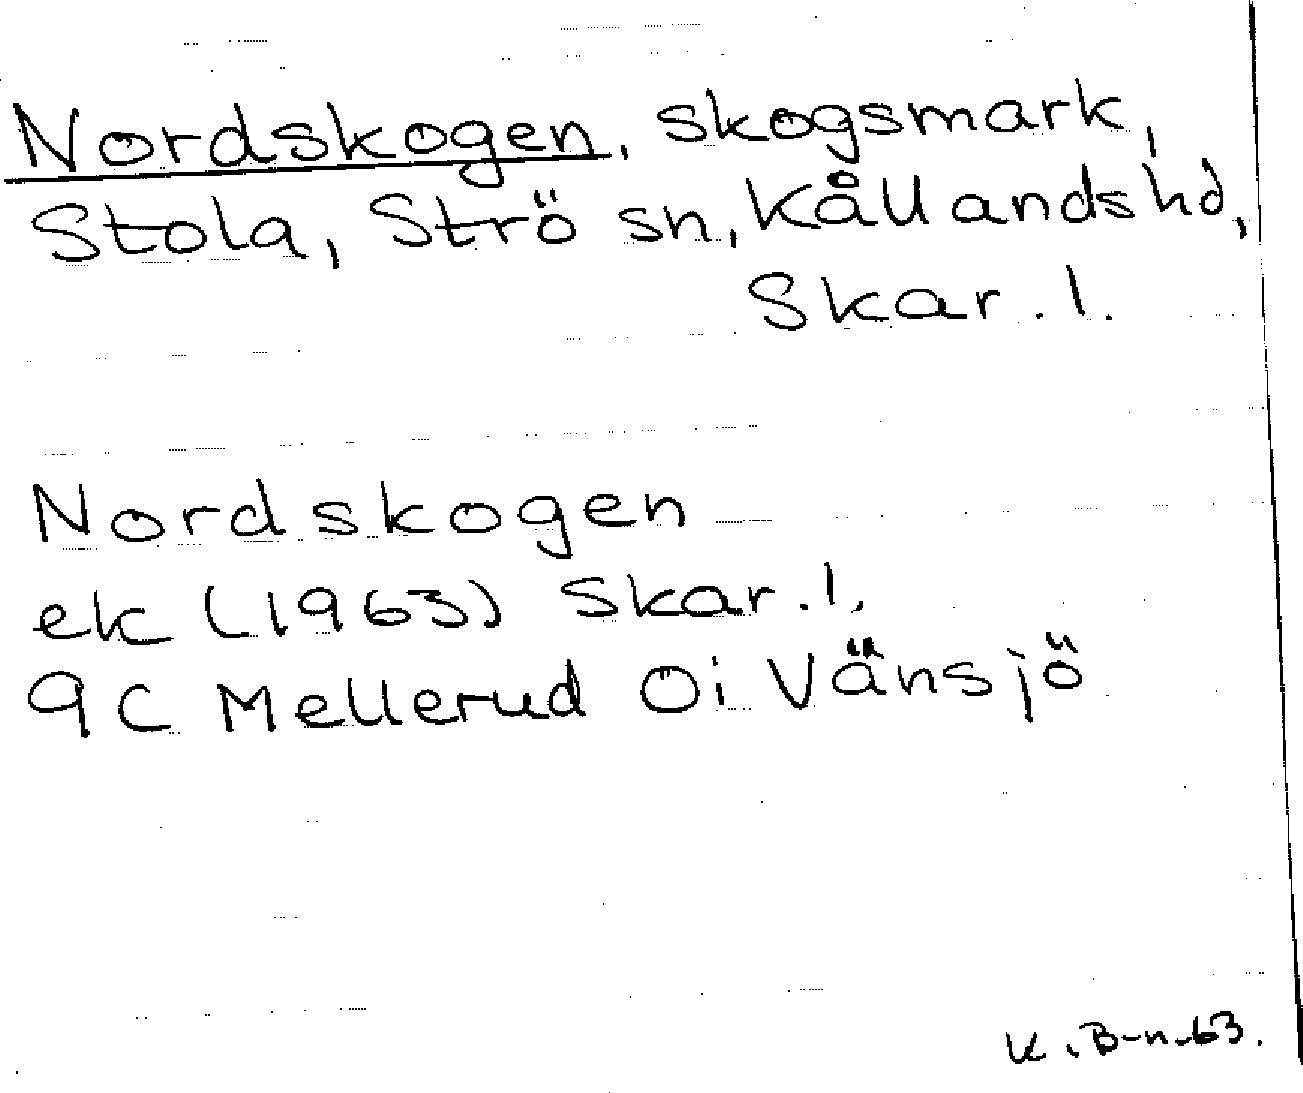 Nordskogen, skogsmark,
Stola, Strö sn, Kållands hd,
Skar. l.
Nordskogen
ek (1963) Skar. l.
9C Mellerud Öi Vänsjö
K. B-n-63.